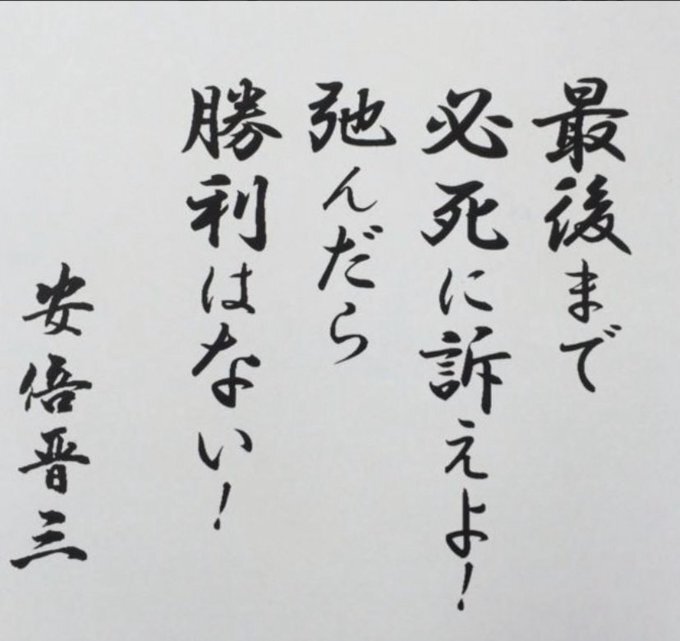 最後まで
必死に訴えよ！
弛んだら
勝利はない！
安倍晋三